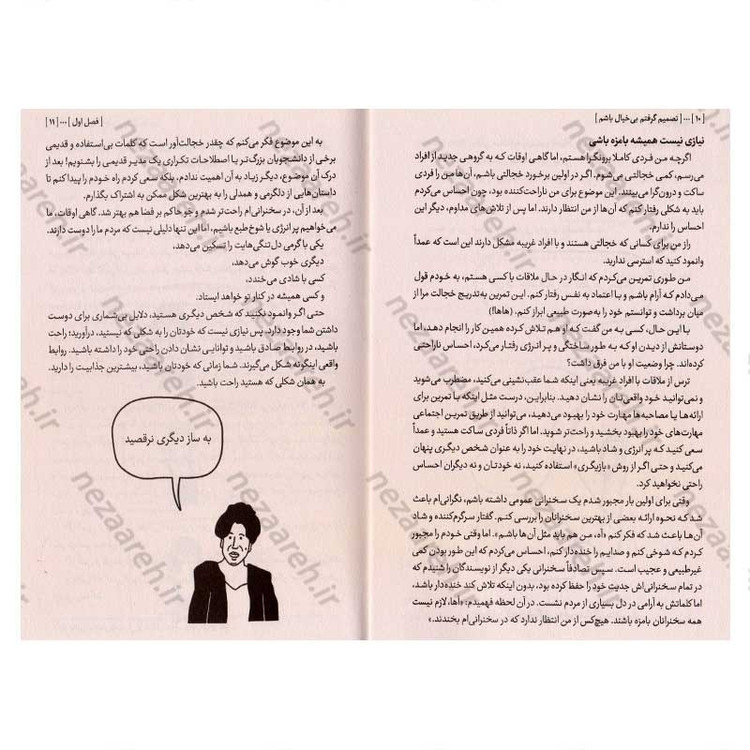 | ۱۰ | ... | تصمیم گرفتم بی‌خیال باشم |
نیازی نیست همیشه بامزه باشی
اگرچه من فردی کاملا برونگرا هستم، اما گاهی اوقات که به گروهی جدید از افراد
می‌رسم، کمی خجالتی می‌شوم. اگر در اولین برخورد خجالتی باشم، آن‌ها من را فردی
ساکت و درون‌گرا می‌بینند. این موضوع برای من ناراحت‌کننده بود، چون احساس می‌کردم
باید به شکلی رفتار کنم که آن‌ها از من انتظار دارند. اما پس از تلاش‌های مداوم، دیگر این
احساس را ندارم.
راز من برای کسانی که خجالتی هستند و با افراد غریبه مشکل دارند این است که عمداً
وانمود کنید که استرسی ندارید.
من طوری تمرین می‌کردم که انگار در حال ملاقات با کسی هستم، به خودم قول
می‌دادم که آرام باشم و با اعتماد به نفس رفتار کنم. این تمرین به‌تدریج خجالت مرا از
میان برداشت و توانستم خود را به‌صورت طبیعی ابراز کنم. (هاها!)
با این حال، کسی به من گفت که او هم تلاش کرده همین کار را انجام دهد، اما
دوستانش از دیدن او که به طور ساختگی و پر انرژی رفتار می‌کرد، احساس ناراحتی
کرده‌اند. چرا وضعیت او با من فرق داشت؟
ترس از ملاقات با افراد غریبه یعنی اینکه شما عقب‌نشینی می‌کنید، مضطرب می‌شوید
و نمی‌توانید خود واقعی‌تان را نشان دهید. بنابراین، درست مثل اینکه با تمرین برای
ارائه‌ها یا مصاحبه‌ها مهارت خود را بهبود می‌دهید، می‌توانید از طریق تمرین اجتماعی
مهارت‌های خود را بهبود بخشید و راحت‌تر شوید. اما اگر ذاتاً فردی ساکت هستید و عمداً
سعی کنید که پر انرژی و شاد باشید، در نهایت خود را به عنوان شخص دیگری پنهان
می‌کنید و حتی اگر از روش «بازیگری» استفاده کنید، نه خودتان و نه دیگران احساس
راحتی نخواهید کرد.
وقتی برای اولین بار مجبور شدم یک سخنرانی عمومی داشته باشم، نگرانی‌ام باعث
شد که نحوه ارائه بعضی از بهترین سخنرانان را بررسی کنم. گفتار سرگرم‌کننده و شاد
آن‌ها باعث شد که فکر کنم «آه، من هم باید مثل آن‌ها باشم». اما وقتی خودم را مجبور
کردم که شوخی کنم و صدایم را خنده‌دار کنم، احساس می‌کردم که این طور بودن کمی
غیرطبیعی و عجیب است. سپس تصادفاً سخنرانی یکی دیگر از نویسندگان را شنیدم که
در تمام سخنرانی‌اش جدیت خود را حفظ کرده بود، بدون اینکه تلاش کند خنده‌دار باشد،
اما کلماتش به آرامی در دل بسیاری از مردم نشست. در آن لحظه فهمیدم: «آها، لازم نیست
همه سخنرانان بامزه باشند. هیچ‌کس از من انتظار ندارد که در سخنرانی‌ام بخندند.»
| فصل اول | ... | ۱۱ |
به این موضوع فکر می‌کنم که چقدر خجالت‌آور است که کلمات بی‌استفاده و قدیمی
برخی از دانشجویان بزرگ‌تر یا اصطلاحات تکراری یک مدیر قدیمی را بشنویم! بعد از
درک آن موضوع، دیگر زیاد به آن اهمیت ندادم، بلکه سعی کردم راه خودم را پیدا کنم تا
داستان‌هایی از دلگرمی و همدلی را به بهترین شکل ممکن به اشتراک بگذارم.
بعد از آن، در سخنرانی‌ام راحت‌تر شدم و جو حاکم بر فضا هم بهتر شد. گاهی اوقات، ما
می‌خواهیم پر انرژی یا شوخ‌طبع باشیم، اما این تنها دلیلی نیست که مردم ما را دوست دارند.
یکی با گرمی دل‌تنگی‌هایت را تسکین می‌دهد،
دیگری خوب گوش می‌دهد،
کسی با شادی می‌خندد،
و کسی همیشه در کنار تو خواهد ایستاد.
حتی اگر وانمود نکنید که شخص دیگری هستید، دلایل بی‌شماری برای دوست
داشتن شما وجود دارد. پس نیازی نیست که خودتان را به شکلی که نیستید، درآورید؛ راحت
باشید، در روابط صادق باشید و توانایی نشان دادن راحتی خود را داشته باشید. روابط
واقعی اینگونه شکل می‌گیرند. شما زمانی که خودتان باشید، بیشترین جذابیت را دارید.
به همان شکلی که هستید راحت باشید.
به ساز دیگری نرقصید
nezaareh.ir